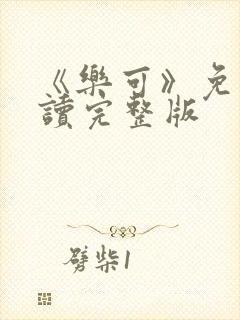 《樂可》免
讀完整版
劈柴1